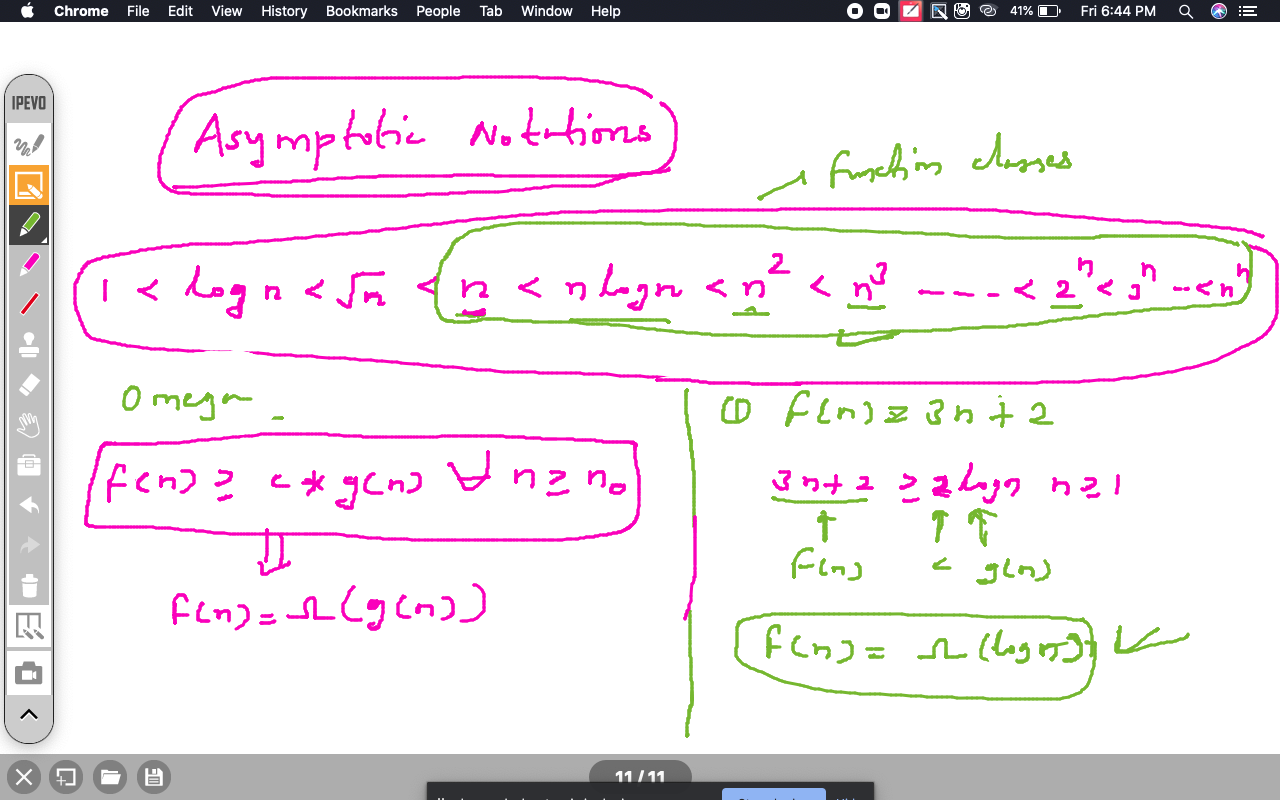 Chrome File Edit View History Bookmarks People Tab Window Help 41% Fri 6:44 PM
IPEVO
Asymptotic Notations
function classes
1 < log n < √n < n < n log n < n² < n³ ---- < 2ⁿ < 3ⁿ -- < nⁿ
Omega
f(n) ≥ c * g(n) ∀ n ≥ n₀
f(n) = Ω(g(n))
① f(n) = 3n + 2
3n + 2 ≥ 2 log n n ≥ 1
f(n) c g(n)
f(n) = Ω(log n)
11 / 11